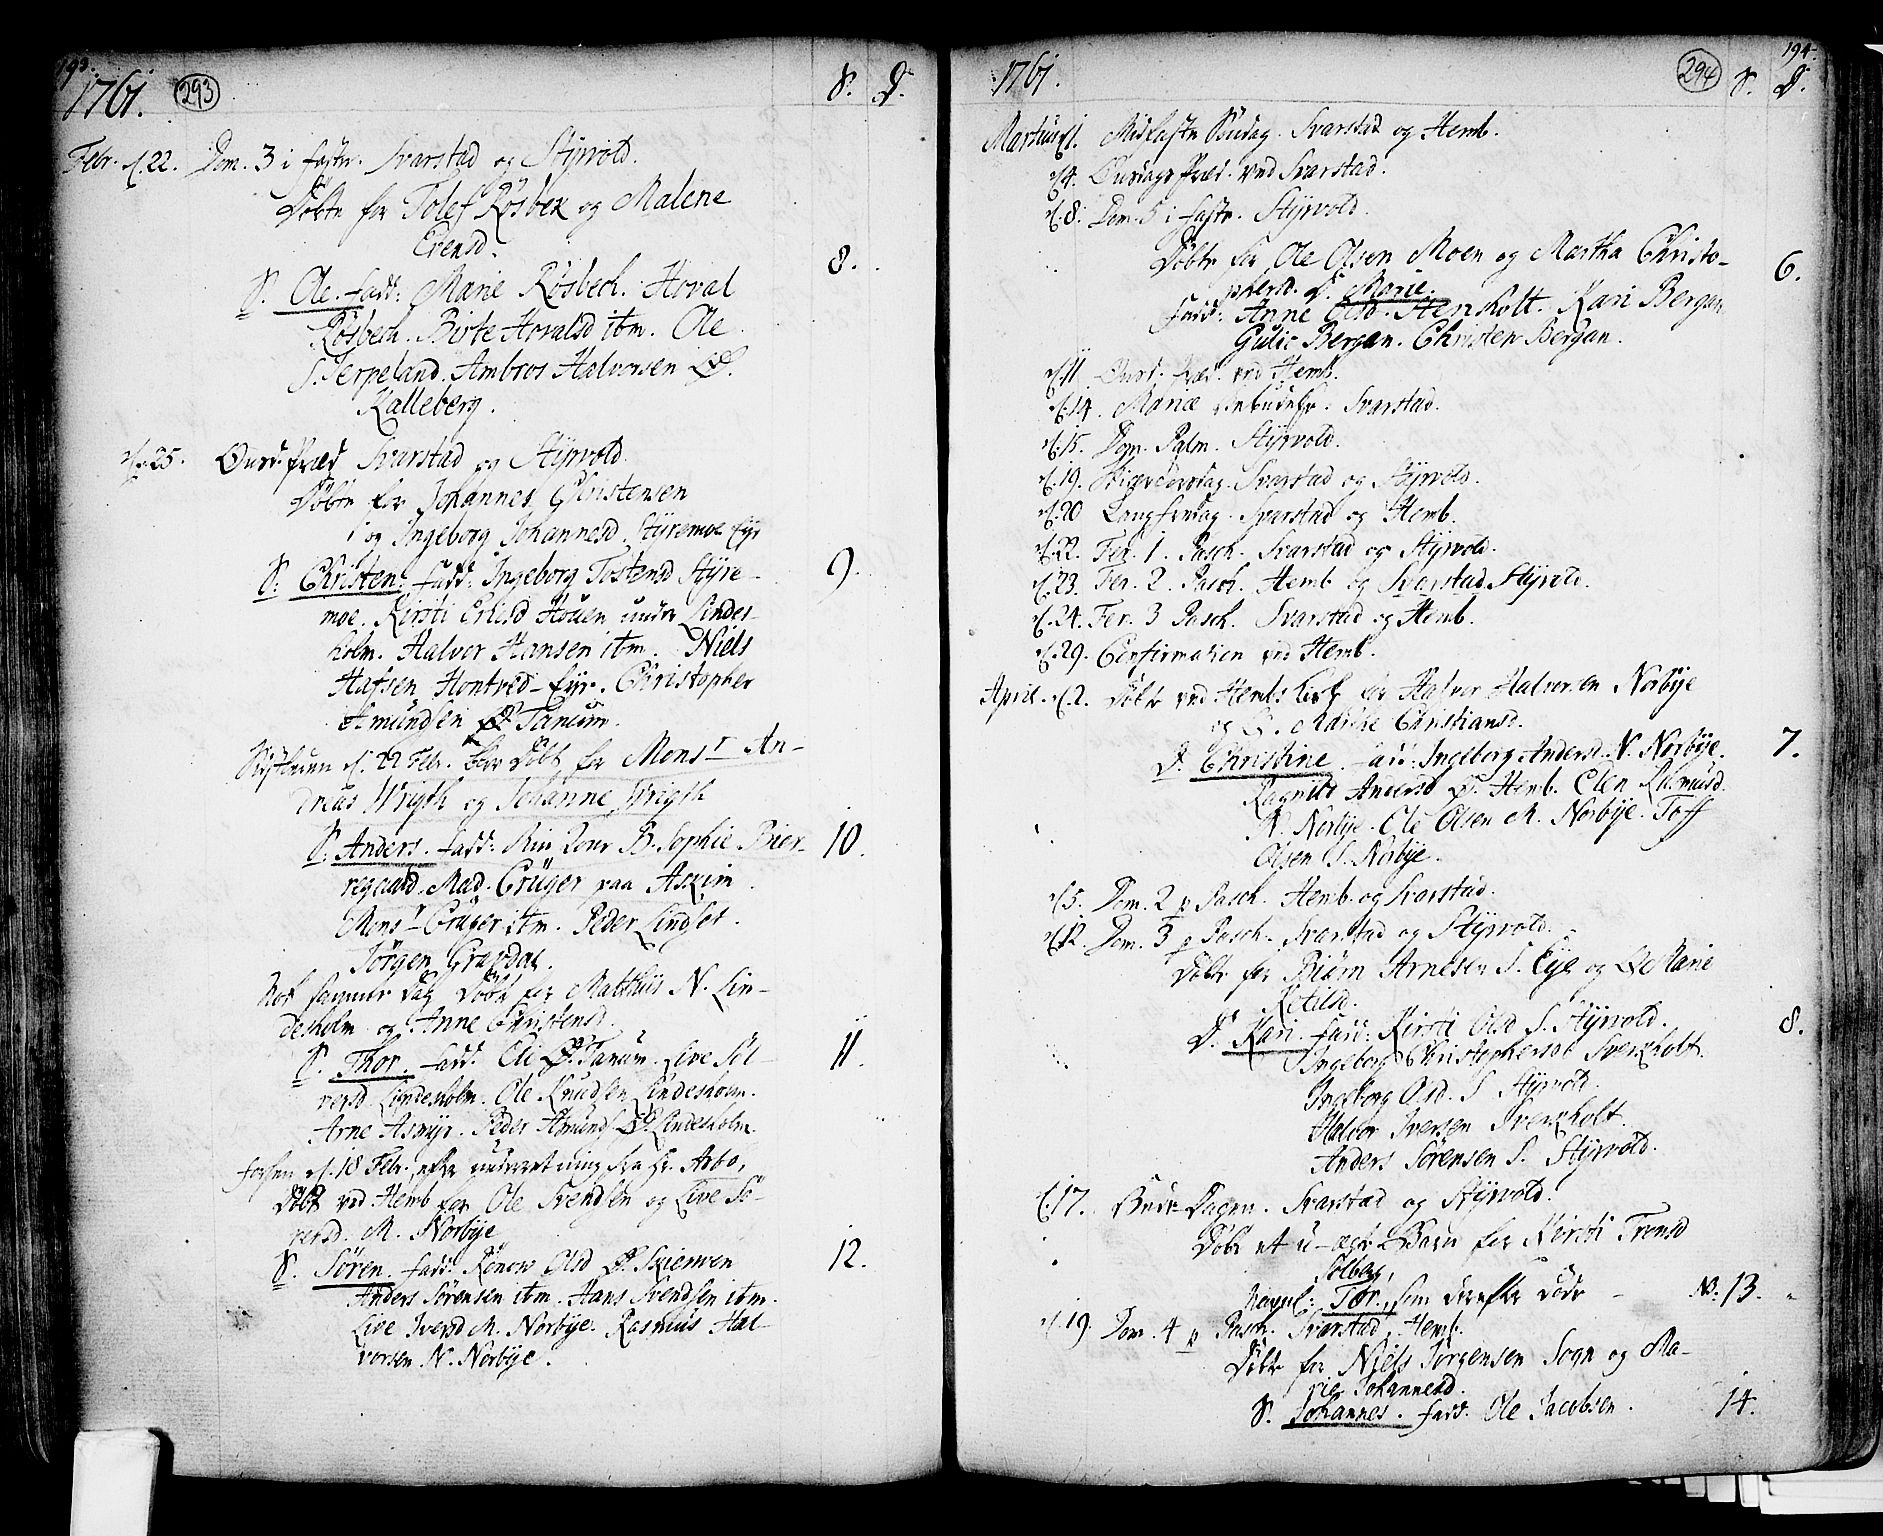 193.
1761. 293 S. D.
Febr. d. 22. Dom. 3 i faste. Svarstad og Styrvold.
Döbte for Tolef Rösbek og Malene
Erensd.
S. Ole. fadd: Marie Rösbech. Hoval 8.
Rösbech. Birte Hovalsd itm. Ole
S. Jerpeland. Ambros Halvorsen Ø.
Kalleberg.
d. 25. Onsd. Præd Svarstad og Styrvold.
Döbte for Johannes Christensen
og Ingeborg Johannesd. Styremoe Eyr
S. Christen. fadd: Ingeborg Tostensd Styre- 9.
moe. Kirsti Erlesd Houen under Lindes-
holm. Halvor Hansen itm. Niels
Hafsen Hontved-Eyr. Christopher
Amundsen Ø. Tanum.
d. 22 Febr. blev döbt for Mons.r An-
dreas Wrigth og Johanne Wrigth
S. Anders. fadd: B. Sophie Bier- 10.
regaard. Mad. Crüger paa Askim
Mons.r Crüger itm. Peder Lindset.
Jörgen Gravdal.
Nok samme Dag döbt for Matthiis N. Lin-
desholm og Anne Christensd.
S. Thor. fadd. Eli Ø. Tanum. Live Söl- 11.
versd Lindesholm. Ole Knudsen Lindesholm.
Arne Asmyr. Peder Amunds. Ø. Lindesholm
d. 18 Febr. efter underretning fra Hr. Arbo,
Döbt ved Hemb for Ole Svendsen og Live Sö-
rensd. M. Norbye
S. Sören. fadd: Rönov Olsd Ø. Skierven 12.
Anders Sörensen itm. Hans Svendsen itm.
Live Iversd M. Norbye. Rasmus Hal-
vorsen N. Norbye.
194.
1761. 294 S. D.
Martius d. 1. Midfaste Söndag. Svarstad og Hemb.
d. 4. Onsdags Præd. ved Svarstad.
d. 8. Dom. 5 i faste. Styrvold.
Döbte for Ole Olsen Moen og Martha Christo- 6.
phersd. D. Marie.
fadd: Anne Olsd. Hersholt. Kari Bergan
Gulic Bergan. Christen Bergan.
d. 11 Onsd. Præd. ved Hemb.
d. 14. Mariæ Svarstad.
d. 15. Dom. Palm. Styrvold.
d. 19. Skiertorsdag. Svarstad og Styrvold.
d. 20 Langfredag. Svarstad og Hemb.
d. 22. Fer. 1. Pasch. Svarstad og Styrvold.
d. 23. Fer. 2. Pasch. Hemb og Svarstad Styrvold.
d. 24. Fer. 3 Pasch. Svarstad og Hemb.
d. 29. Confirmation ved Hemb.
April. d. 2. Döbt ved Hembs Kirk for Halvor Halvorsen Norbye
og Christiansd.
D. Christine. fadd: Ingeborg Andersd. N. Norbye. 7.
Ragnild Andersd Ø. Hemb. Elen Rasmusd.
N. Norbye. Ole Olsen M. Norbye. Toff
Olsen S. Norbye.
d. 5. Dom. 2 p Pasch. Hemb og Svarstad.
d. 12. Dom. 3 p Pasch. Svarstad og Styrvold.
Döbt for Biörn Arnesen S. Eye og Marie
Ketilsd.
D. Kari. fadd: Kirsti Olsd S. Styrvold. 8.
Ingeborg Christophersd Sverkholt.
Ingeborg Olsd. S. Styrvold.
Halvor Iversen Sverkholt.
Anders Sörensen S. Styrvold.
d. 17. Bede-Dagen. Svarstad og Styrvold.
Döbt et u-ægte Barn for Kirsti Tronsd
Solberg,
Navnl: Tor, som derefter döde - N. 13. "
d. 19. Dom. 4 p Pasch. Svarstad, Hemb.
Döbt for Niels Jörgensen Sogn og Ma-
rie Johannesd.
S. Johannes. fadd. Ole Jacobsen. 14.